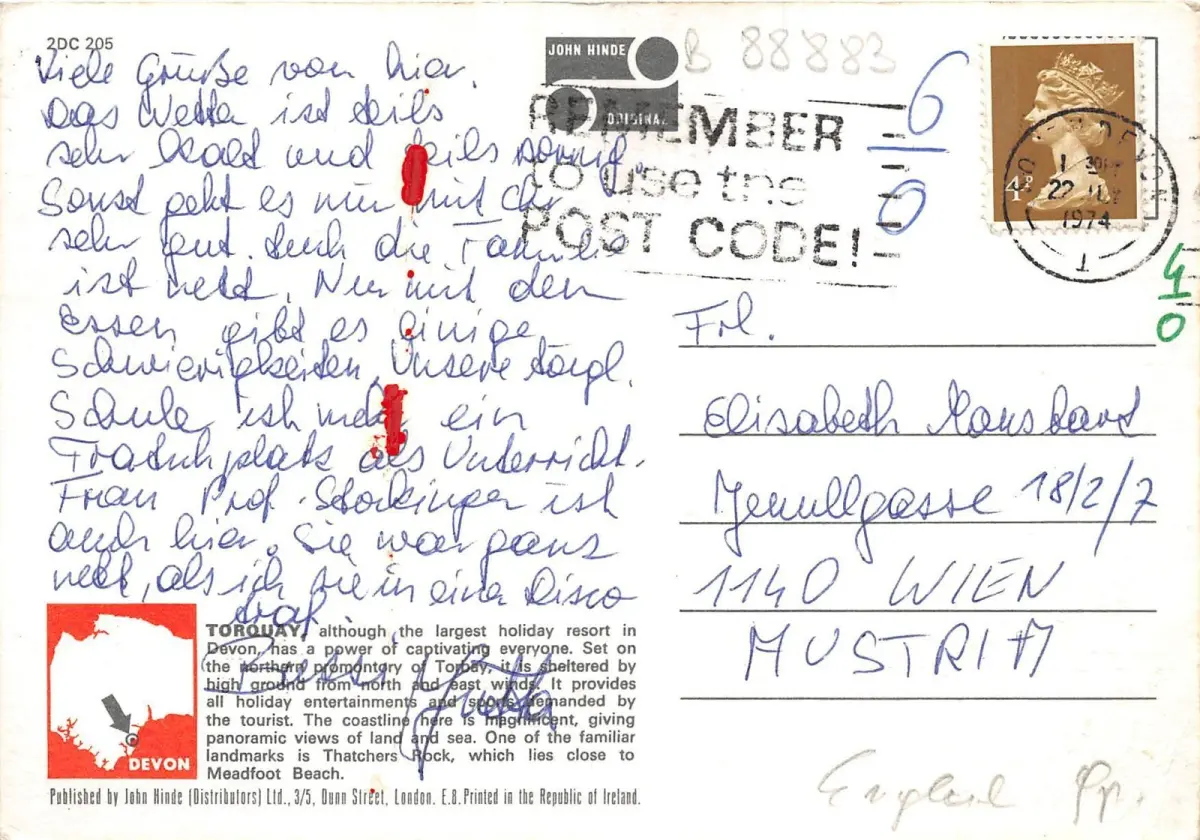 2DC 205
Viele Grüße von hier.
Das Wetter ist teils
sehr kalt und teils sonnig
Sonst geht es mir mit
sehr gut. Auch die Familie
ist nett. Nur mit dem
Essen gibt es einige
Schwierigkeiten. Unsere tägl.
Schule ist mehr ein
Tratschplatz als Unterricht.
Frau Prof. Stockinger ist
auch hier. Sie war ganz
nett, als ich sie in einer Disco
traf.
Bussi Jutta
JOHN HINDE
ORIGINAL
B 88883
REMEMBER
to use the
POST CODE!
6
0
4P
DEVON
1 30PM
22 JLY
1974
1
4
0
Frl.
Elisabeth
Jenullgasse 18/2/7
1140 WIEN
AUSTRIA
TORQUAY, although the largest holiday resort in
Devon, has a power of captivating everyone. Set on
the northern promontory of Torbay, it is sheltered by
high ground from north and east winds. It provides
all holiday entertainments and sports demanded by
the tourist. The coastline here is magnificent, giving
panoramic views of land and sea. One of the familiar
landmarks is Thatchers Rock, which lies close to
Meadfoot Beach.
DEVON
Published by John Hinde (Distributors) Ltd., 3/5, Dunn Street, London. E.8. Printed in the Republic of Ireland.
England